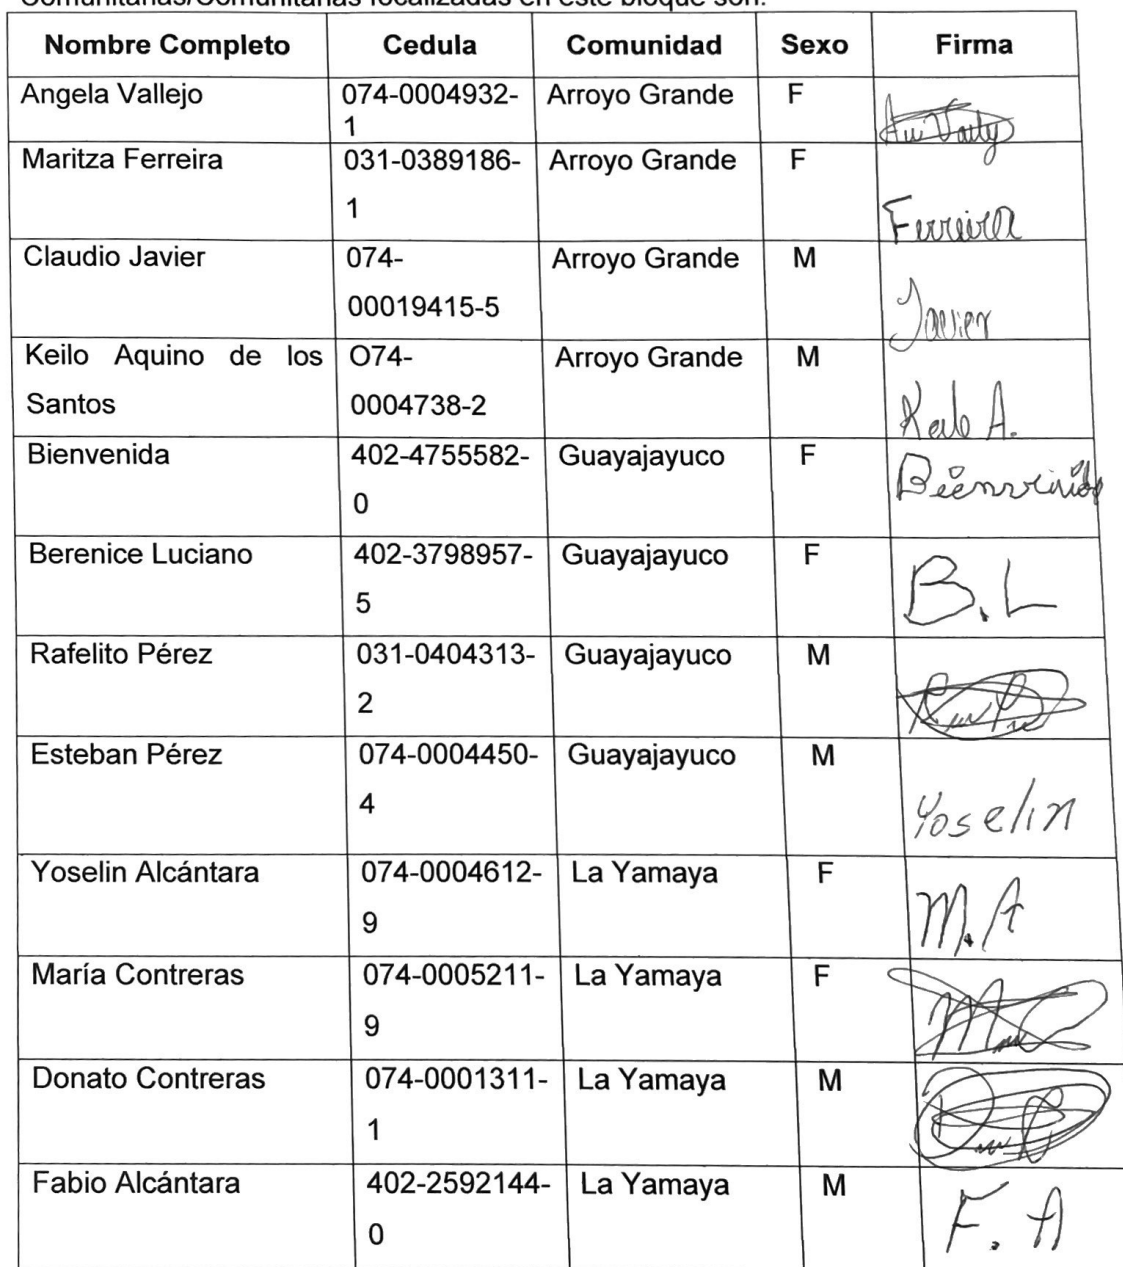 Comunitarias/Comunitarias focalizadas en este bloque son:
Nombre Completo Cedula Comunidad Sexo Firma
Angela Vallejo 074-0004932- Arroyo Grande F
1
Maritza Ferreira 031-0389186- Arroyo Grande F
1 Ferreira
Claudio Javier 074- Arroyo Grande M
00019415-5 Javier
Keilo Aquino de los O74- Arroyo Grande M
Santos 0004738-2 A.
Bienvenida 402-4755582- Guayajayuco F Bienvenida
0
Berenice Luciano 402-3798957- Guayajayuco F B.L
5
Rafelito Pérez 031-0404313- Guayajayuco M
2
Esteban Pérez 074-0004450- Guayajayuco M
4 Yoselin
Yoselin Alcántara 074-0004612- La Yamaya F
9 M.A
María Contreras 074-0005211- La Yamaya F
9
Donato Contreras 074-0001311- La Yamaya M
1
Fabio Alcántara 402-2592144- La Yamaya M
0 F. A